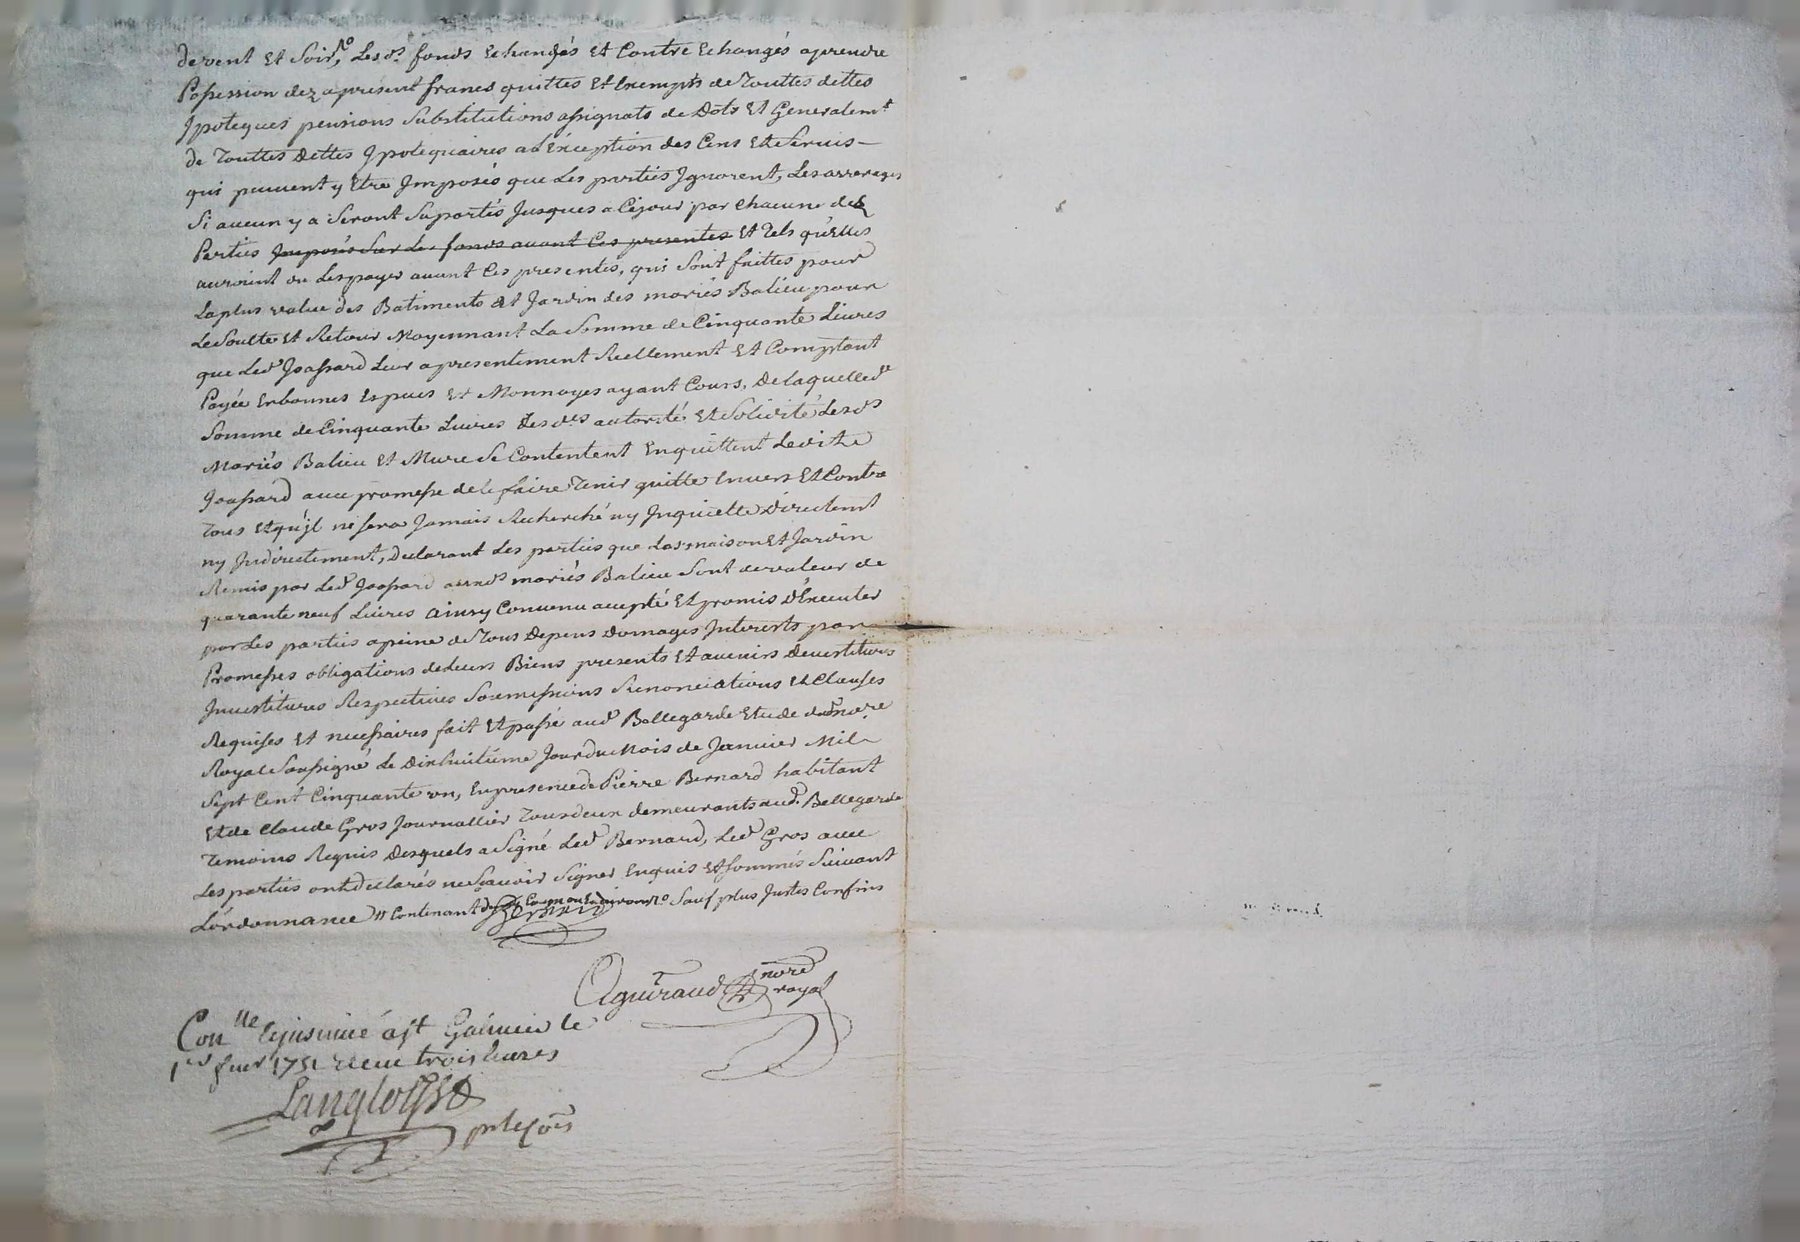 devent et Soir, Lesds. fonds Echangés et Contre Echangés aprendre
Possession dez apresent francs quittes et Exempts de Touttes dettes
Ypoteques pensions Substitutions assignats de Dots et Generalemt
de Touttes Dettes Ypotequaires a L'Exception des Cens et Servis
qui peuvent y Etre Imposés que Les parties Ignorent, Les arrerages
Si aucun y a Seront Suportés Jusques a Cejour par Chacune des
Parties Imposés Sur Les fonds avant Ces presentes et Tels qu'Elles
auroint du Les payer avant Ces presentes, qui Sont faittes pour
La plus value des Batiments et Jardin des mariés Balieu pour
Le Soulte et Retour Moyennant La Somme de Cinquante Livres
que Led. Joassard Leur a presentement Reellement et Comptant
Payée En bonnes Especes et Monnoyes ayant Cours, De laquelle de
Somme de Cinquante Livres Lesds autorité et Solidité Lesds
Mariés Balieu et Mure Se Contentent Enquittent Ledit
Joassard avec promesse de le faire Tenir quitte Envers et Contre
Tous et qu'jl ne sera Jamais Recherché ny Inquietté Directemt
ny Indirectement, Declarant Les parties que Las maison et Jardin
Remis par Led. Joassard auxds mariés Balieu Sont de valeur de
quarante neuf Livres ainsy Convenu accepté et promis d'Executer
par Les parties a peine de Tous Depens Domages Interests par
Promesses obligations de Leurs Biens presents et avenirs Devestitures
Investitures Respectives Soumissions Renonciations et Clauses
Requises et necessaires fait et passé aud. Bellegarde Etude dud. nore
Royal Soussigné Le Dixhuitieme Jour du Mois de Janvier Mil
Sept Cent Cinquante un, En presence de Pierre Bernard habitant
et de Claude Gros Journallier Tous deux demeurants aud. Bellegarde
Temoins Requis Desquels a Signé Led. Bernard, Led. Gros avec
Les parties ont declarés ne Sçavoir Signer Enquis et Sommés Suivant
L'ordonnance // Contenant Sauf plus Justes Confins
Bernard
Aguiraud nore
royal
Con lle Et jnsinué a St Galmier le
1er fever 1751 receu trois livres
Langlois